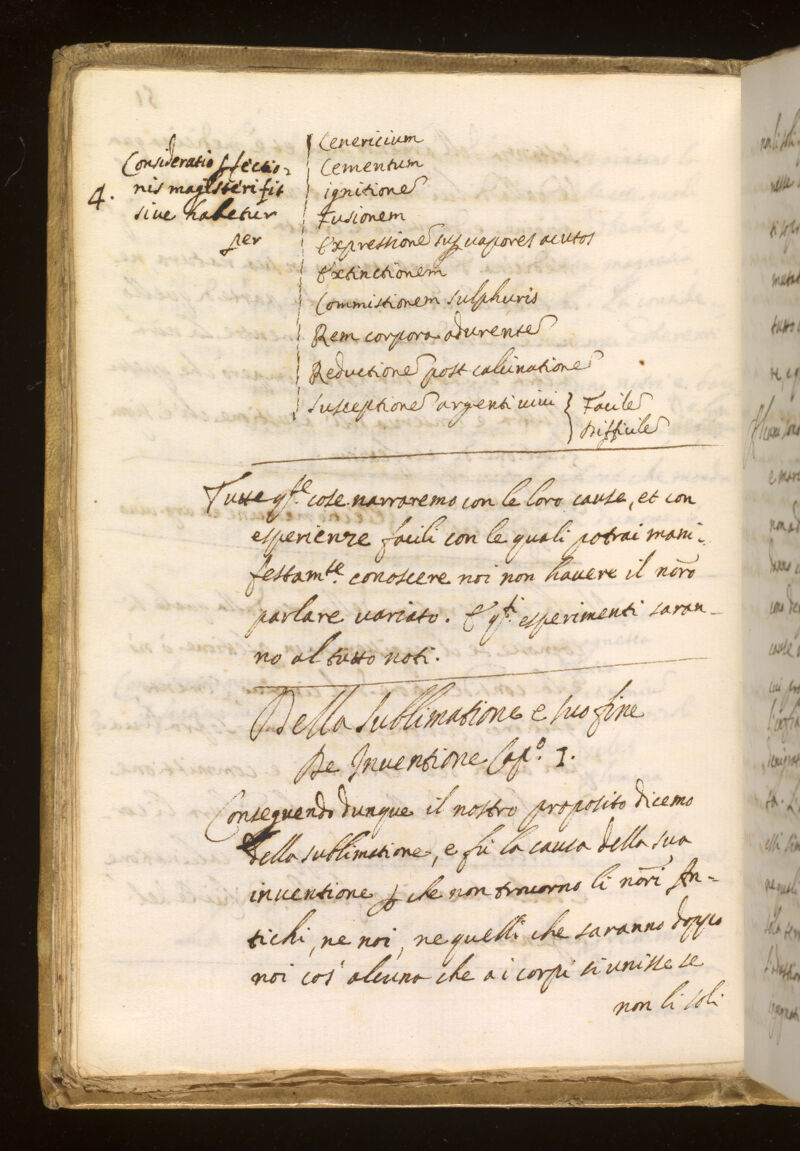 4.
Consideratio pfectio-
nis magisteri fit
sive habetur
per
Cenericium
Cementum
ignitione
Fusionem
Expressione sup vapores acutos
Extinctionem
Commistionem sulphuris
Rem corpora adurente
Reductione post calcinatione
Susceptione argenti vivi } Facile
Difficile
Tutte qste cose narraremo con le loro cause, et con
esperienze facili con le quali potrai mani-
festamte conoscere noi non havere il nõro
parlare variato. E qti esperimenti saran-
no al tutto noti.
Della Sublimatione e suo fine
De Inventione Capo. 1.
Conseguendo dunque il nostro proposito dicemo
della sublimatione, e fù la causa della sua
inventione p che non trovorno li nõri An-
tichi, ne noi, ne quelli che saranno doppo
noi cos' alcuna che a i corpi si unisse se
non li soli